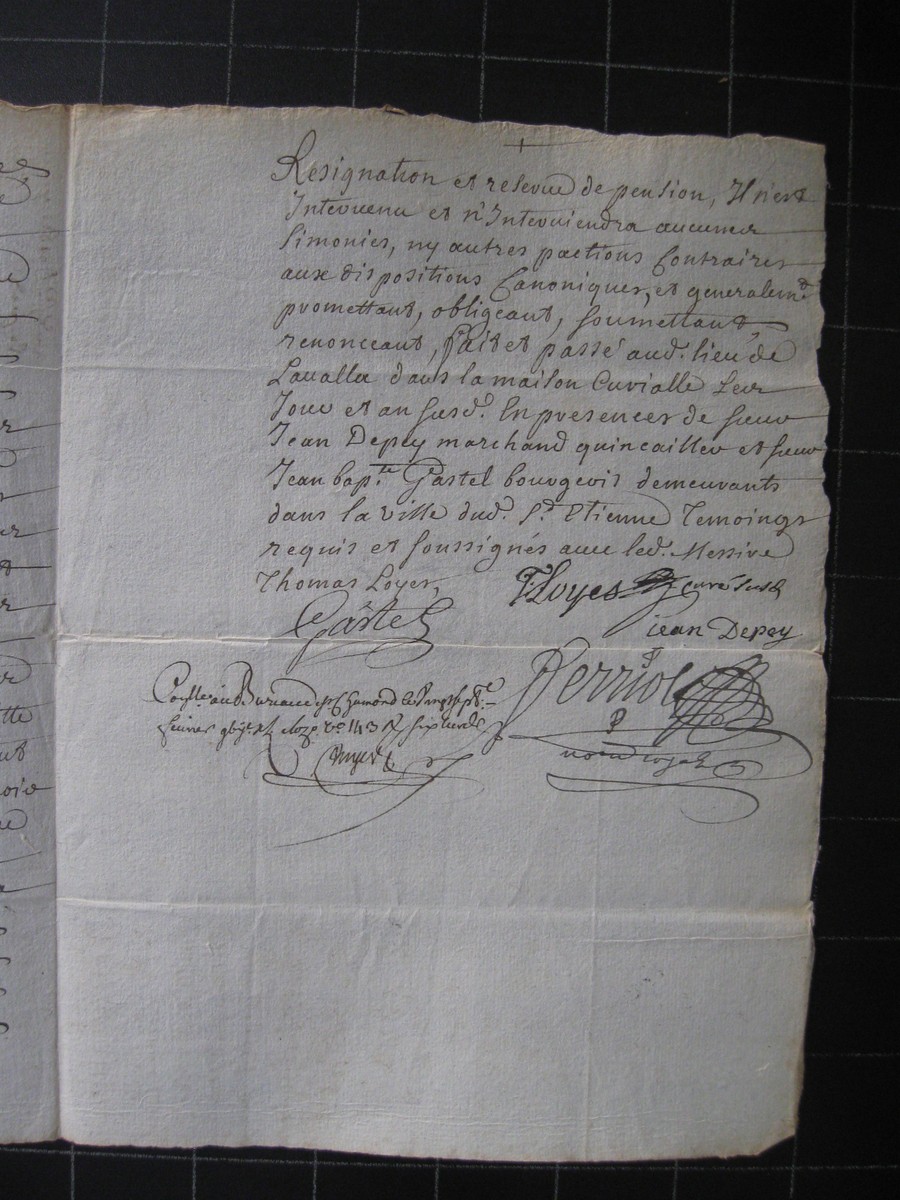 Resignation et reserve de pension, Il n'est
Intervenu et n'Interviendra aucunes
simonies, ny autres pactions Contraires
aux dispositions Canoniques, et generalemt.
promettant, obligeant, soumettant,
renonceant, fait et passé aud. lieu de
Lavalla dans la maison Curialle Les
Jour et an susd. En presences de sieur
Jean Depey marchand quincailler et sieur
Jean bapte. Gastel bourgeois demeurants
dans la ville dud. St. Etienne Temoings
requis et soussignés avec led. Messire
Thomas Loyer,
T. Loyer curé susd.
Gastel
jean Depey
Perriolo
nore. royal